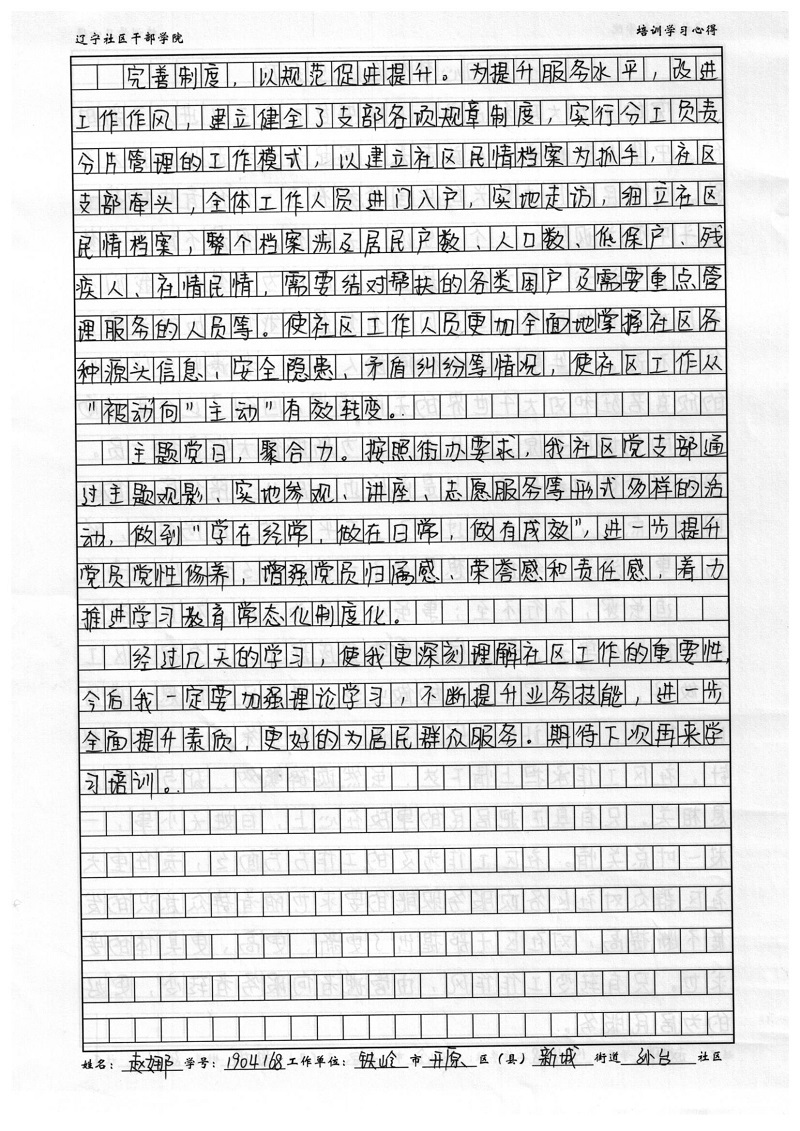 辽宁社区干部学院 培训学习心得
完善制度，以规范促进提升。为提升服务水平，改进
工作作风，建立健全了支部各项规章制度，实行分工负责
分片管理的工作模式，以建立社区民情档案为抓手，社区
支部牵头，全体工作人员进门入户，实地走访，细立社区
民情档案，整个档案涉及居民户数、人口数、低保户、残
疾人、社情民情，需要结对帮扶的各类困户及需要重点管
理服务的人员等。使社区工作人员更加全面地掌握社区各
种源头信息、安全隐患、矛盾纠纷等情况，使社区工作从
"被动向"主动"有效转变。
主题党日，聚合力。按照街办要求，我社区党支部通
过主题观影、实地参观、讲座、志愿服务等形式多样的活
动，做到"学在经常，做在日常，做有成效"，进一步提升
党员党性修养，增强党员归属感、荣誉感和责任感，着力
推进学习教育常态化制度化。
经过几天的学习，使我更深刻理解社区工作的重要性，
今后我一定要加强理论学习，不断提升业务技能，进步
全面提升素质，更好的为居民群众服务。期待下次再来学
习培训。
姓名：赵娜 学号：1904168 工作单位：铁岭 市 开原 区（县） 新城 街道 孙台 社区